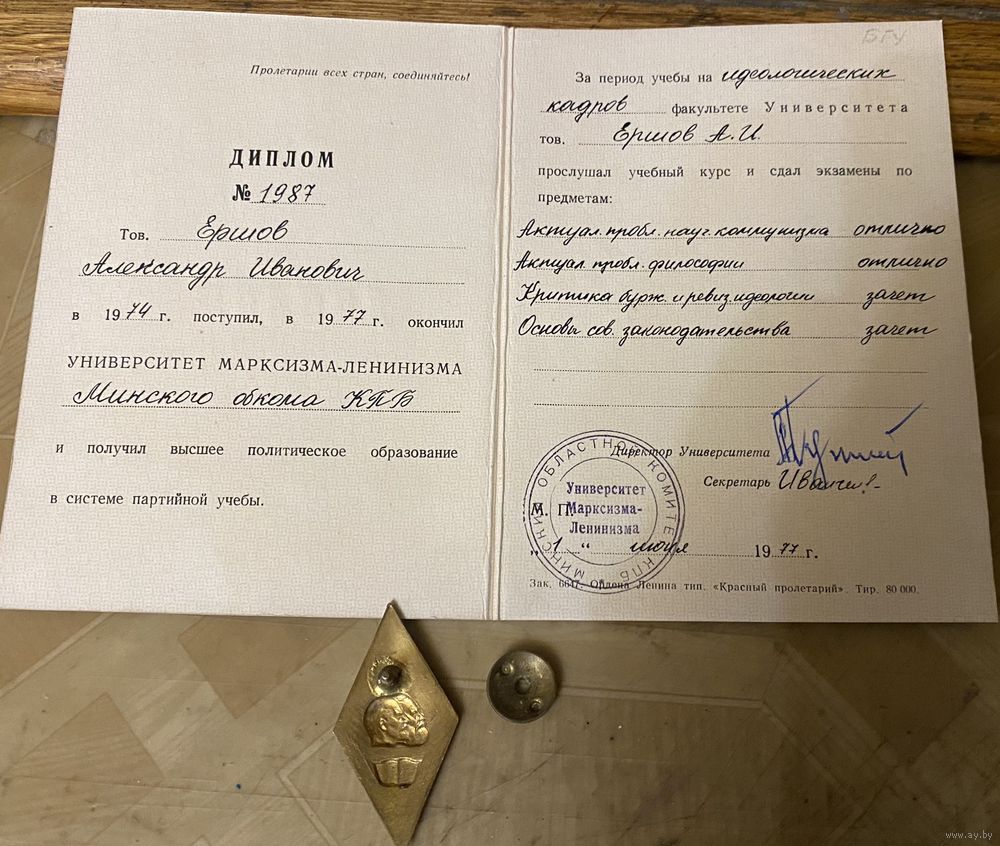 Пролетарии всех стран, соединяйтесь!
ДИПЛОМ
№ 1987
Тов. Ершов
Александр Иванович
в 1974 г. поступил, в 1977 г. окончил
УНИВЕРСИТЕТ МАРКСИЗМА-ЛЕНИНИЗМА
Минского обкома КПБ
и получил высшее политическое образование
в системе партийной учебы.
БГУ
За период учебы на идеологических
кадров факультете Университета
тов. Ершов А.И.
прослушал учебный курс и сдал экзамены по
предметам:
Актуал. пробл. науч. коммунизма отлично
Актуал. пробл. философии отлично
Критика бурж. и ревиз. идеологии зачет
Основы сов. законодательства зачет
Директор Университета
Секретарь
М. П.
МИНСКИЙ ОБЛАСТНОЙ КОМИТЕТ КПБ
Университет
Марксизма-
Ленинизма
„1“ июля 1977 г.
Зак. 6647. Ордена Ленина тип. «Красный пролетарий». Тир. 80 000.
www.ay.by